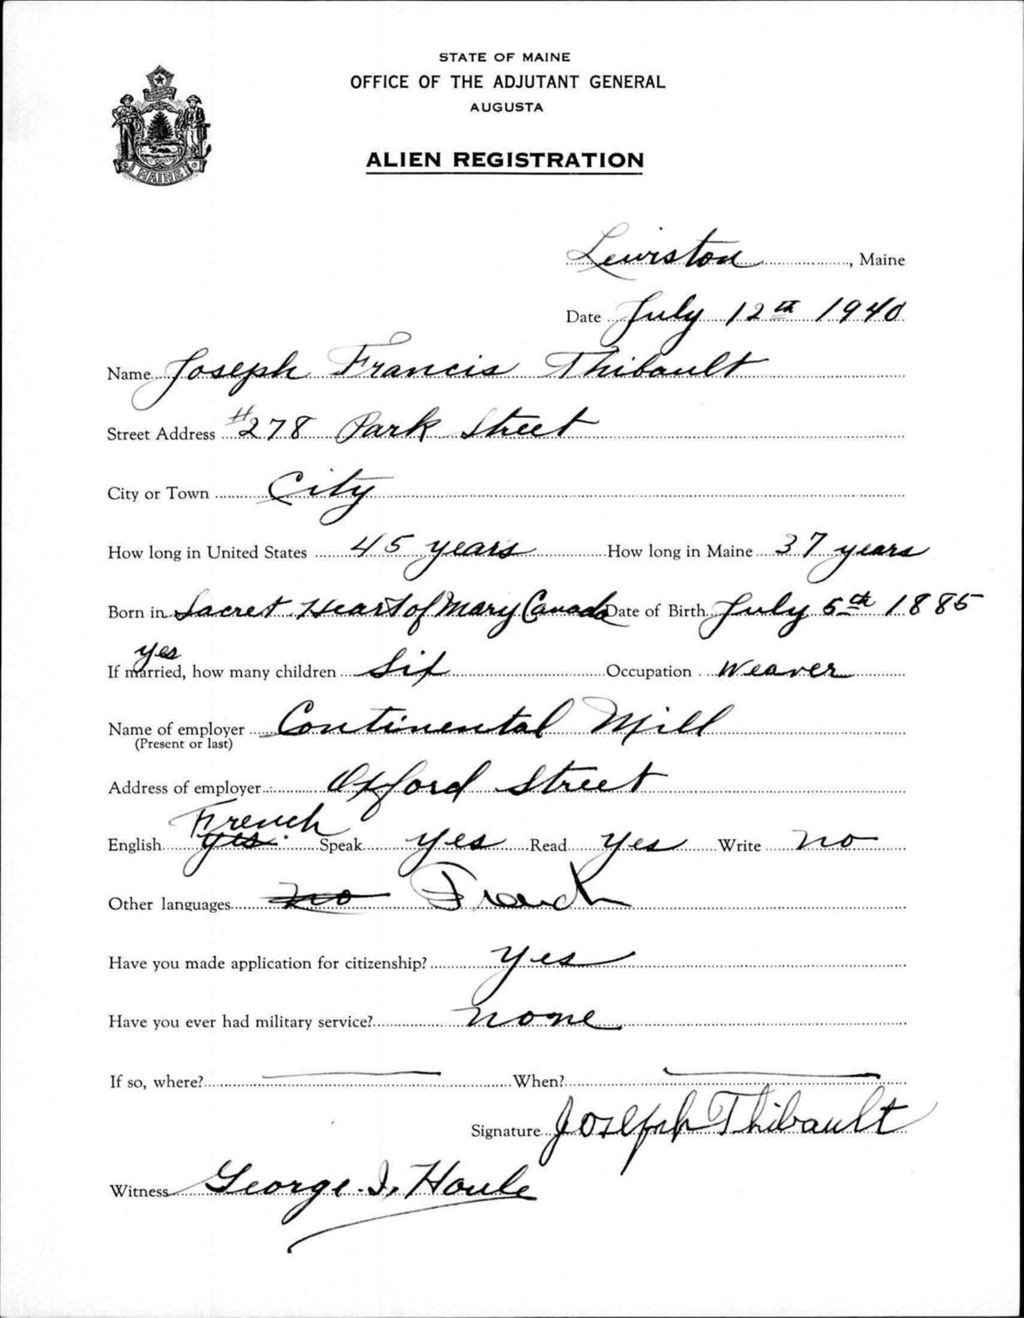 STATE OF MAINE
OFFICE OF THE ADJUTANT GENERAL
AUGUSTA
ALIEN REGISTRATION
MAINE
Lewiston, Maine
Date July 12th 1940
Name Joseph Francis Thibault
Street Address #278 Park Street
City or Town City
How long in United States 45 years How long in Maine 37 years
Born in Sacret Heart of Mary Canada Date of Birth July 5th 1885
yes
If married, how many children Six Occupation Weaver
Name of employer Continental Mill
(Present or last)
Address of employer Oxford Street
French
English yes. Speak yes Read yes Write no
Other languages no French
Have you made application for citizenship? yes
Have you ever had military service? none
If so, where? When?
Signature Joseph Thibault
Witness George I. Houle